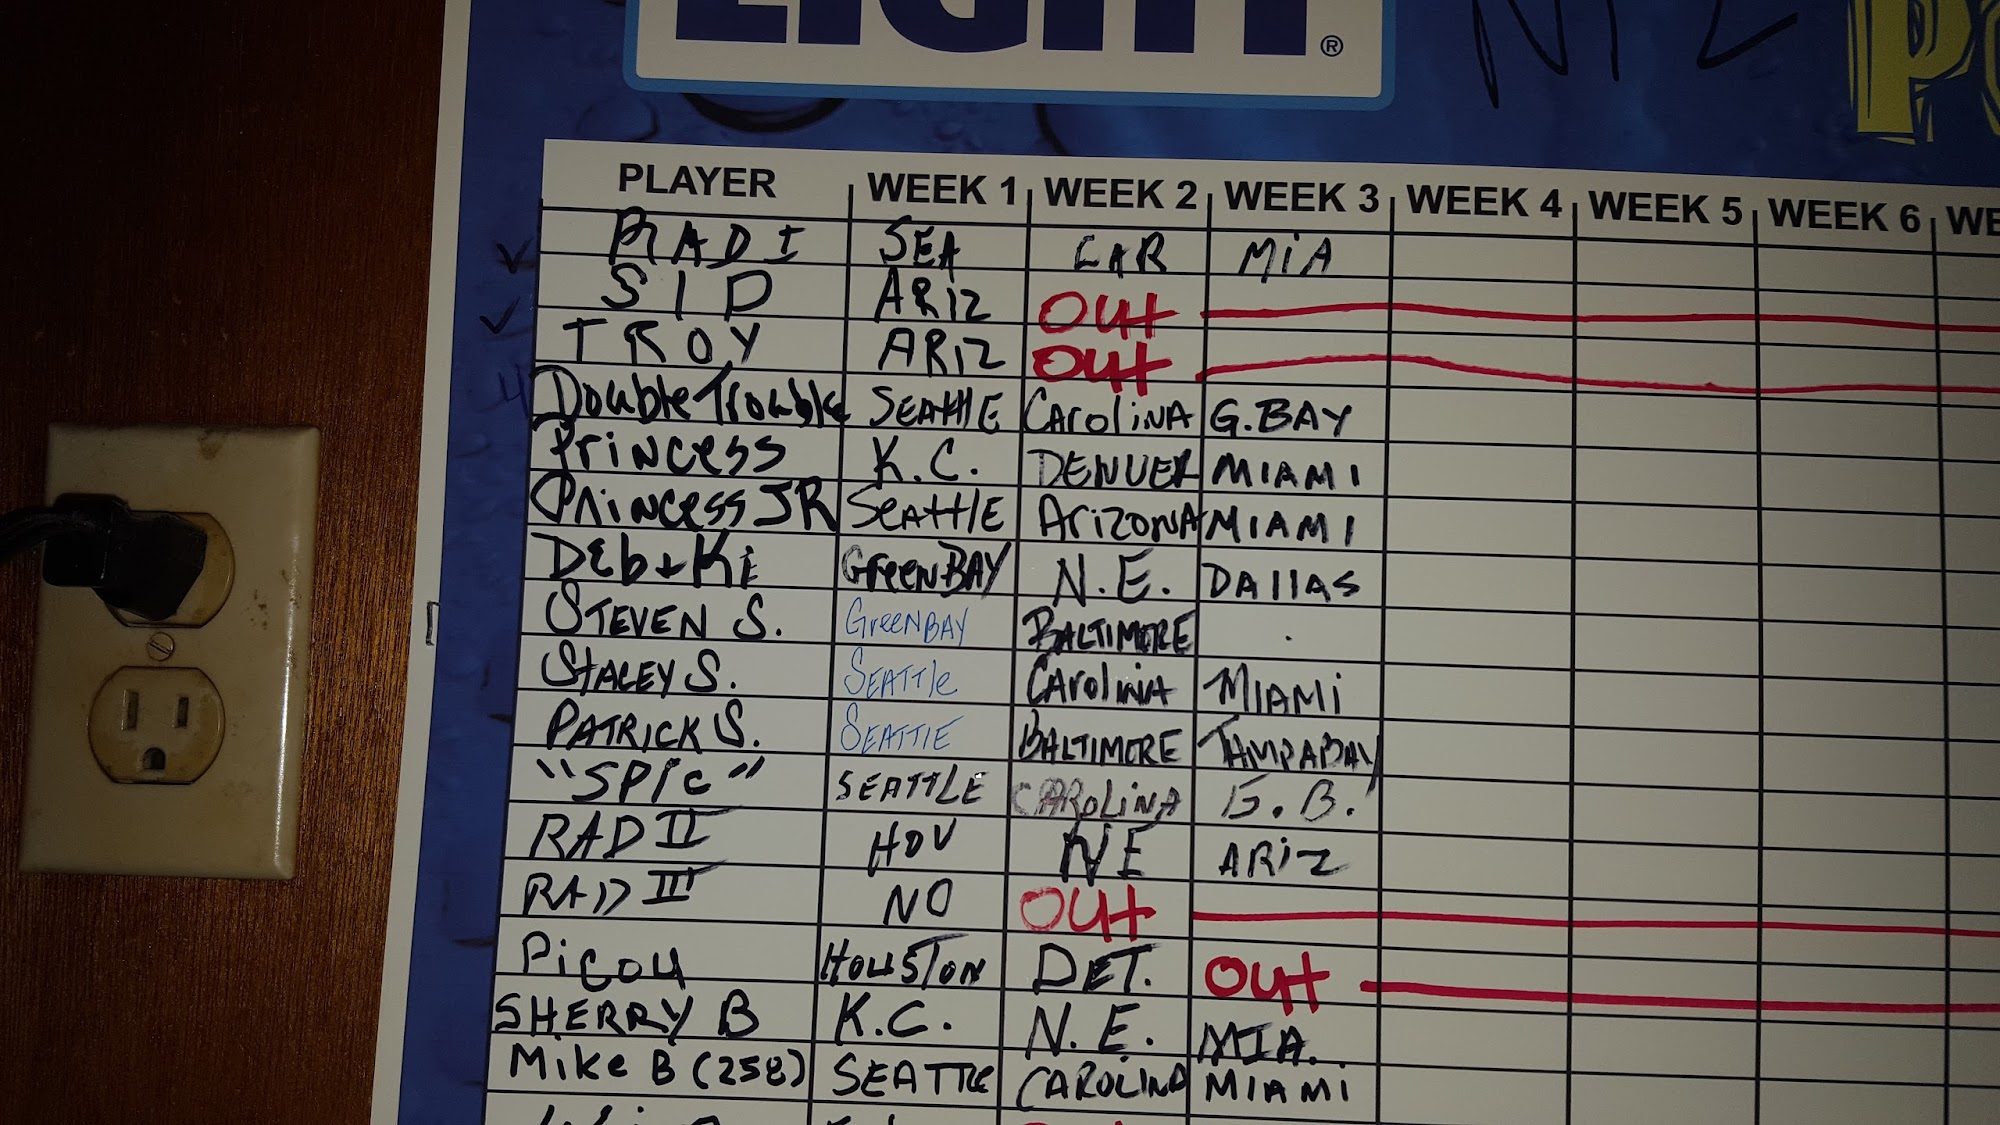 LIGHT®
NFL
PLAYER WEEK 1 WEEK 2 WEEK 3 WEEK 4 WEEK 5 WEEK 6 WE
RAD I SEA CAR MiA
SID ARIZ OUT
TROY ARIZ OUT
Double Trouble SEATTLE CAROLINA G.BAY
Princess K.C. DENVER MIAMI
Princess JR SEATTLE ARIZONA MIAMI
Deb + Ki GREENBAY N.E. DALLAS
STEVEN S. GREENBAY BALTIMORE
STACEY S. SEATTLE CAROLINA MIAMI
PATRICK S. SEATTLE BALTIMORE TAMPABAY
"SPIC" SEATTLE CAROLINA G.B.
RAD II HOU NE ARIZ
RAD III NO OUT
Picou HOUSTON DET. OUT
SHERRY B K.C. N.E. MIA.
Mike B (258) SEATTLE CAROLINA MIAMI